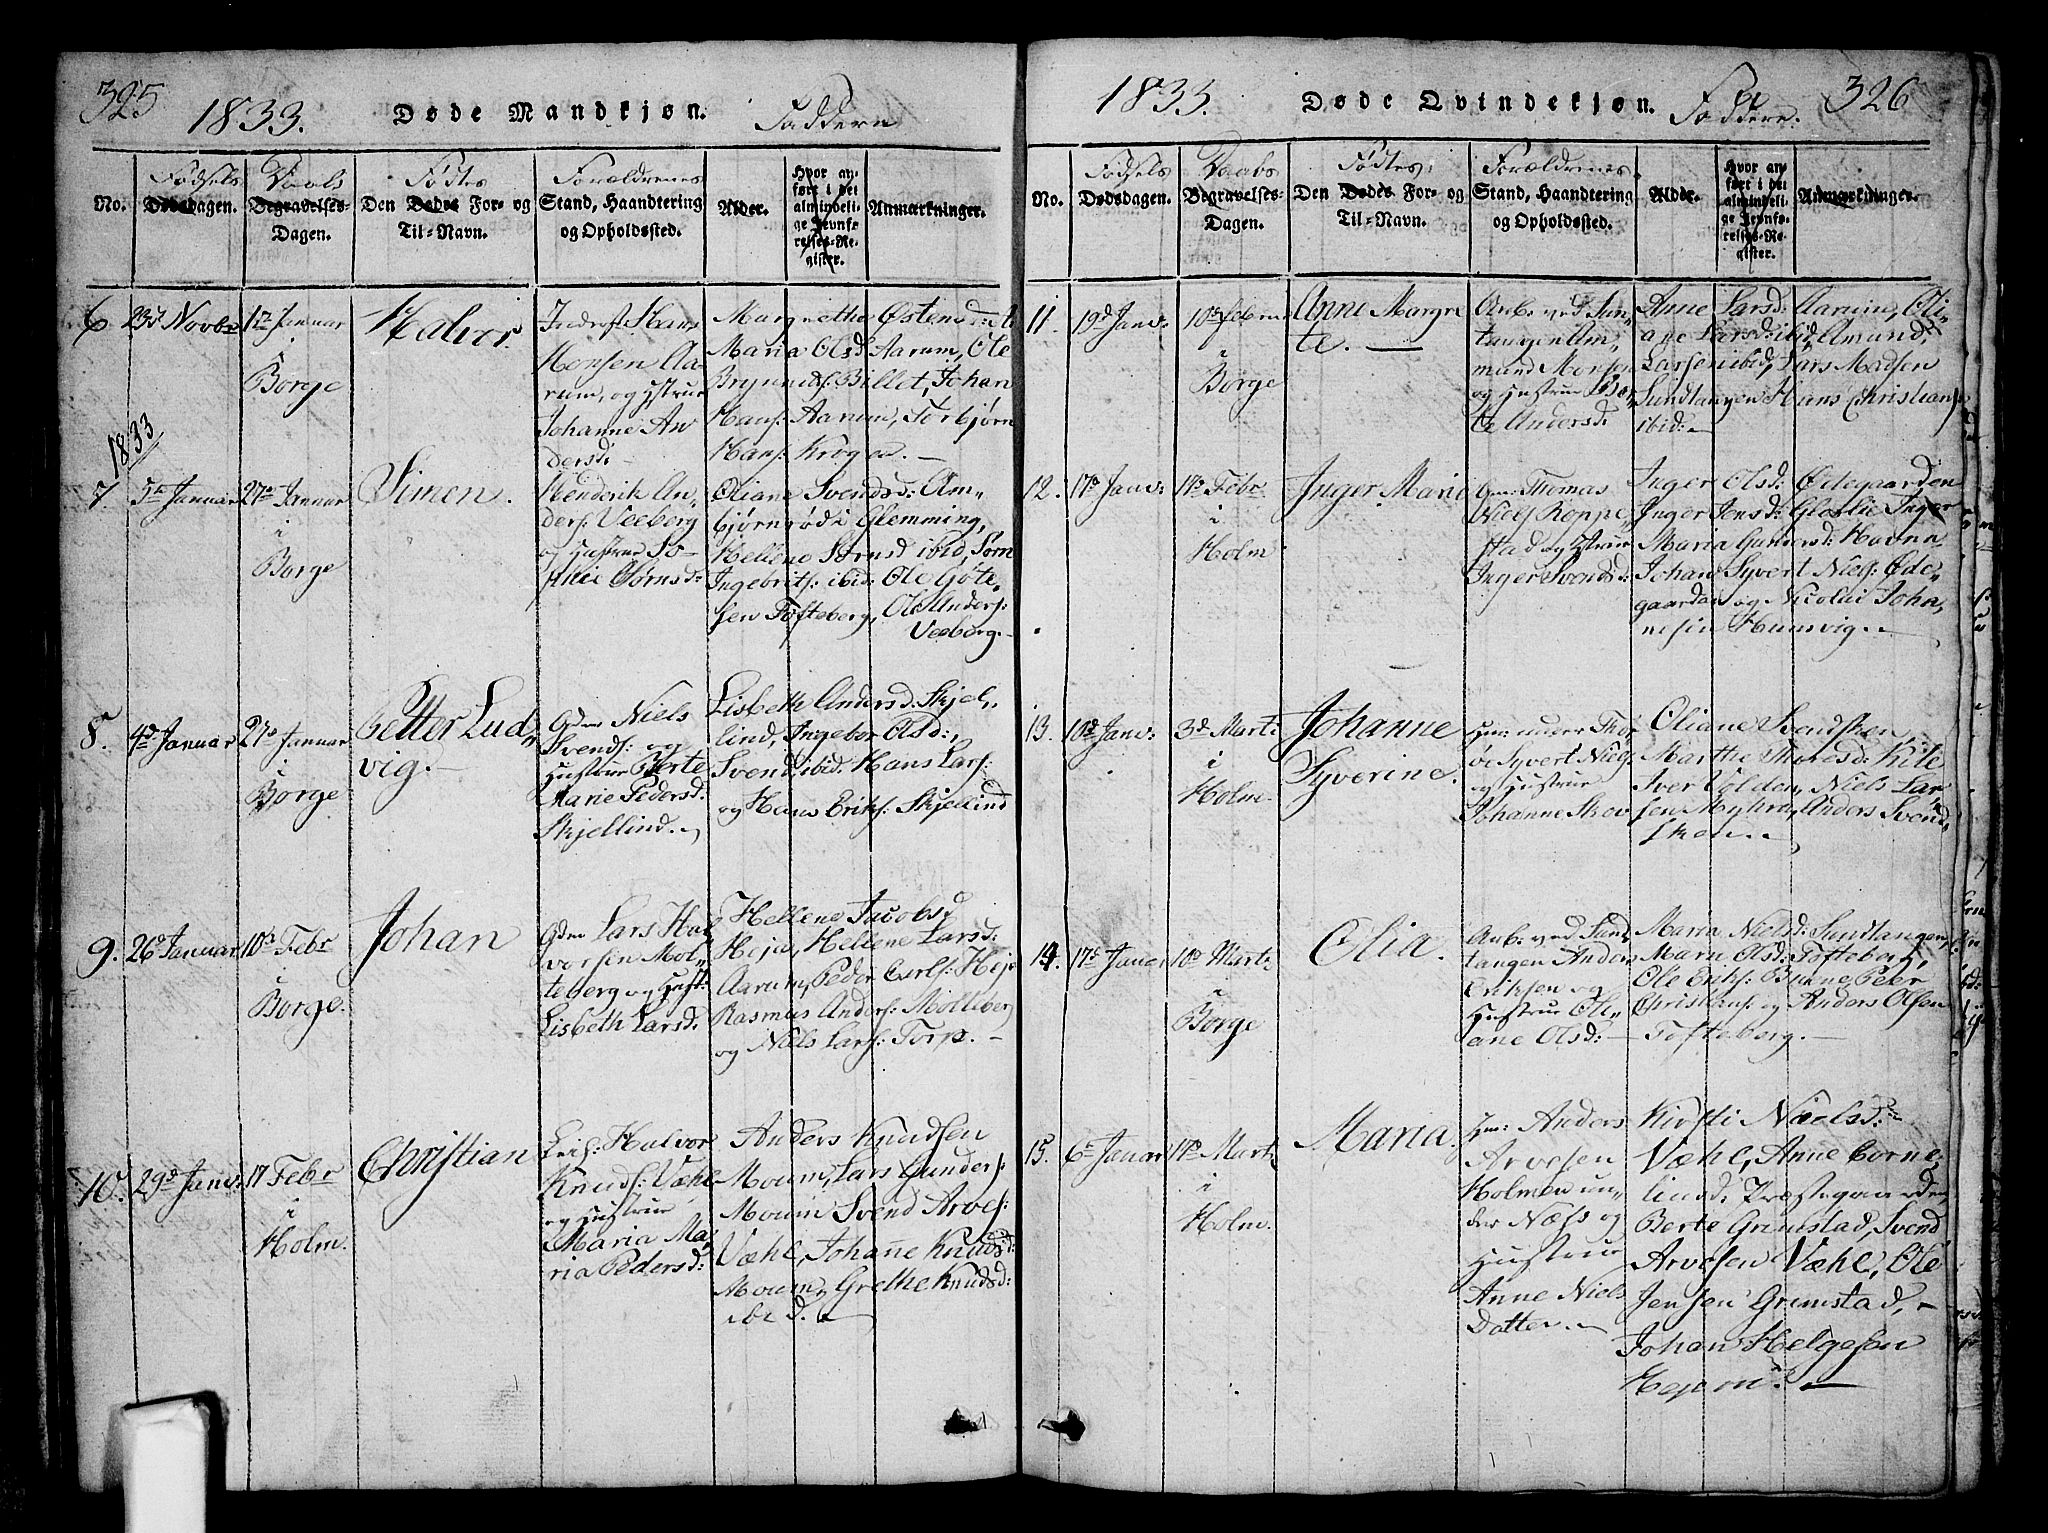 325
1833.
Døde Mandkjøn.
Faddere
No.
Fødsels
Dødsdagen.
Daabs
Begravelses-
Dagen.
Fødtes
Den Dødes For- og
Til-Navn.
Forældrenes
Stand, Haandtering
og Opholdssted.
Alder.
Hvor an-
ført i det
almindeli-
ge Jevnfø-
relses-Re-
gister.
Anmærkninger.
6
23d Novbr
1te Januar
i
Borge
Halvor
Inderst Hans
Monsen Aa-
rum, og Hstrue
Johanne An
dersd.
Margrethe Østensd
Maria Olsd Aarum, Ole
Brynnelds: Billet, Johan
Hans: Aarum, Torbjørn
Hans: Krogen.
1833
7.
5te Januar
27d Januar
i
Borge
Simen.
Henderik An-
ders: Veeberg
og Hustrue So-
phie Ørnsd:
Oliane Svendsd: Am-
bjørnrød i Glemming,
Hellene Sørnsd ibid, Sørn
Ingebrits: ibid: Ole Gøte-
sen Tofteberg, Ole Anders:
Veeberg.
8.
4d Januar
27d Januar
i
Borge
Petter Lud-
vig.
Gdm Niels
Svends: og
Hustrue Berte
Marie Pedersd.
Skjellind.
Lisbeth Andersd. Skjel-
lind, Ingebor Olsd:,
Svend ibid: Hans Lars:
og Hans Eriks: Skjellind
9.
26d Januar
10de Febr
i
Borge.
Johan
Gdm Lars Hal
vorsen Mol-
teberg og Hust:
Lisbeth Larsd:
Hellene Jacobsd
Heja, Hellene Larsd:
Aarum, Peder Carls: Heje
Rasmus Anders: Molteberg
og Niels Lars: Torp.
10.
29d Janv:
17 Febr
i
Holm.
Christian
Leif: Halvor
Knuds: Væhl
og Hustrue
Maria Ma-
ria Pedersd:
Anders Knudsen
Moum, Lars Gunders:
Moum Svend Arves:
Væhl, Johanne Knudsd:
Moum, Grethe Knudsd:
ibid.
1833.
Døde Qvindekjøn.
Faddere.
326
No.
Fødsels
Dødsdagen.
Daabs
Begravelses-
Dagen.
Fødtes
Den Dødes For- og
Til-Navn.
Forældrenes
Stand, Haandtering
og Opholdssted.
Alder.
Hvor an-
ført i det
almindeli-
ge Jevnfø-
relses-Re-
gister.
Anmærkninger.
11.
19d Janv:
10de febru
i
Borge
Anne Margre
te.
Arb: ved Sun-
tangen Am-
mund Monsen
og Hustrue Ber-
te Andersd.
Anne Larsd: Aarum, Oli-
ane Larsd: ibid, Amund
Larsen ibid, Lars Madsen
Sundtangen Hans Christians:
ibid:
12.
17d Janv:
17d Febr
i
Holm
Inger Marie
Gm: Thomas
Niels Roppe-
stad og Hstrue
Inger Svendsd:
Inger Olsd: Ødegaarden
Inger Jensd: Glaslie Inger
Maria Gundersd:
Johan Syvert Niels: Øde-
gaarden og Nicolai Johan-
nesen Humvig.
13.
10d Janv:
3d Marts
i
Holm.
Johanne
Syverine.
Hm: under Thor-
ø Syvert Niels:
og Hustrue
Johanne Skov
Oliane Svendsken,
Marthe Thoresd: Kile
Iver Volden, Niels Lar-
sen Myhra, Anders Svend
sken.
14.
17d Januar
10d Marts
i
Borge
Olia.
Arb: ved Sand-
tangen Anders
Eriksen og
Hustrue Ole-
ane Olsd:
Maria Nielsd: Sundtangen,
Maria Olsd: Tofteberg,
Ole Eriks: Bunne Peer
Christians: og Anders Olsen
Tofteberg.
15.
6te Januar
17d Marts
i
Holm.
Maria.
Hm: Anders
Arvesen
Holmen un-
der Næss og
Hustrue
Anne Niels
Datter.
Kirsti Nielsd:
Væhl, Anne Corne-
liusd. Præstegaarden
Berte Grimstad, Svend
Arvesen Væhl, Ole
Jensen Grimstad,
Johan Helgesen